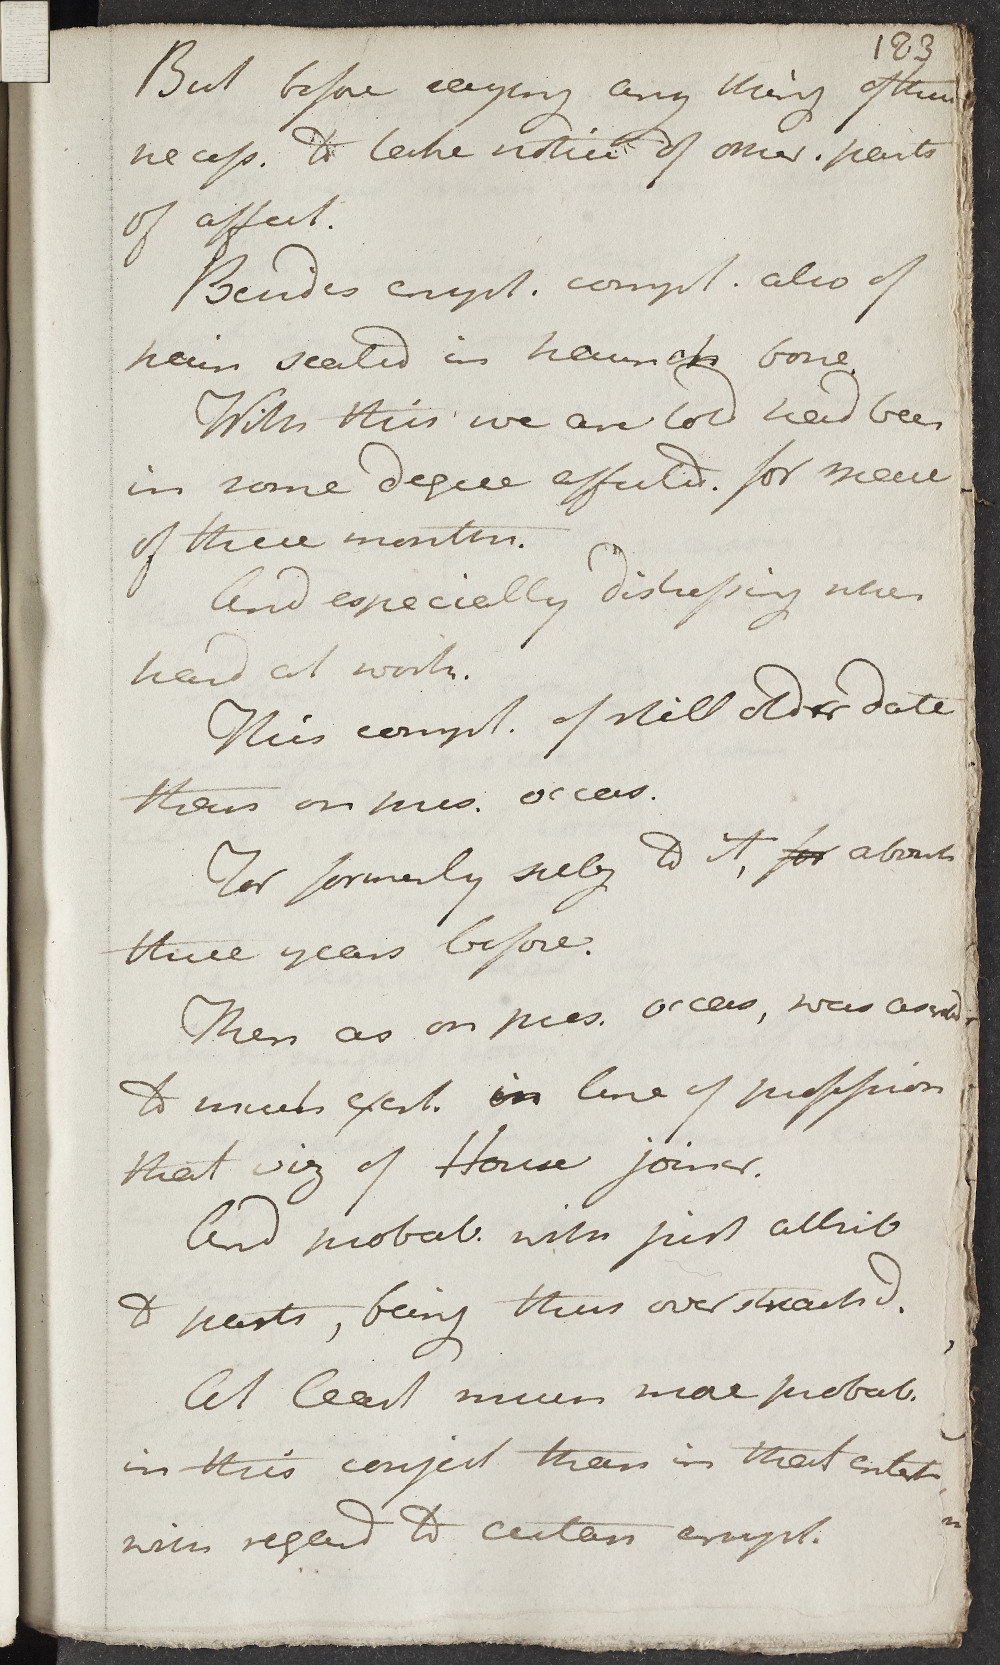 183
But before saying any thing of them
necess. to take notice of other. parts
of affect.
Besides erupt. compl. also of
pain seated in haunch bone.
With this we are told had been
in some degree affected. for space
of three months.
And especially distressing when
hard at work.
This compl. of still older date
than on pres. occas.
For formerly subj to it, for about
three years before.
Then as on pres. occas, was ascribd
to much exert. in line of profession
that viz of House joiner.
And probab. with just attrib
to parts, being thus overstreachd.
At least much more probab.
in this conject than in that entert
with regard to cutan erupt.